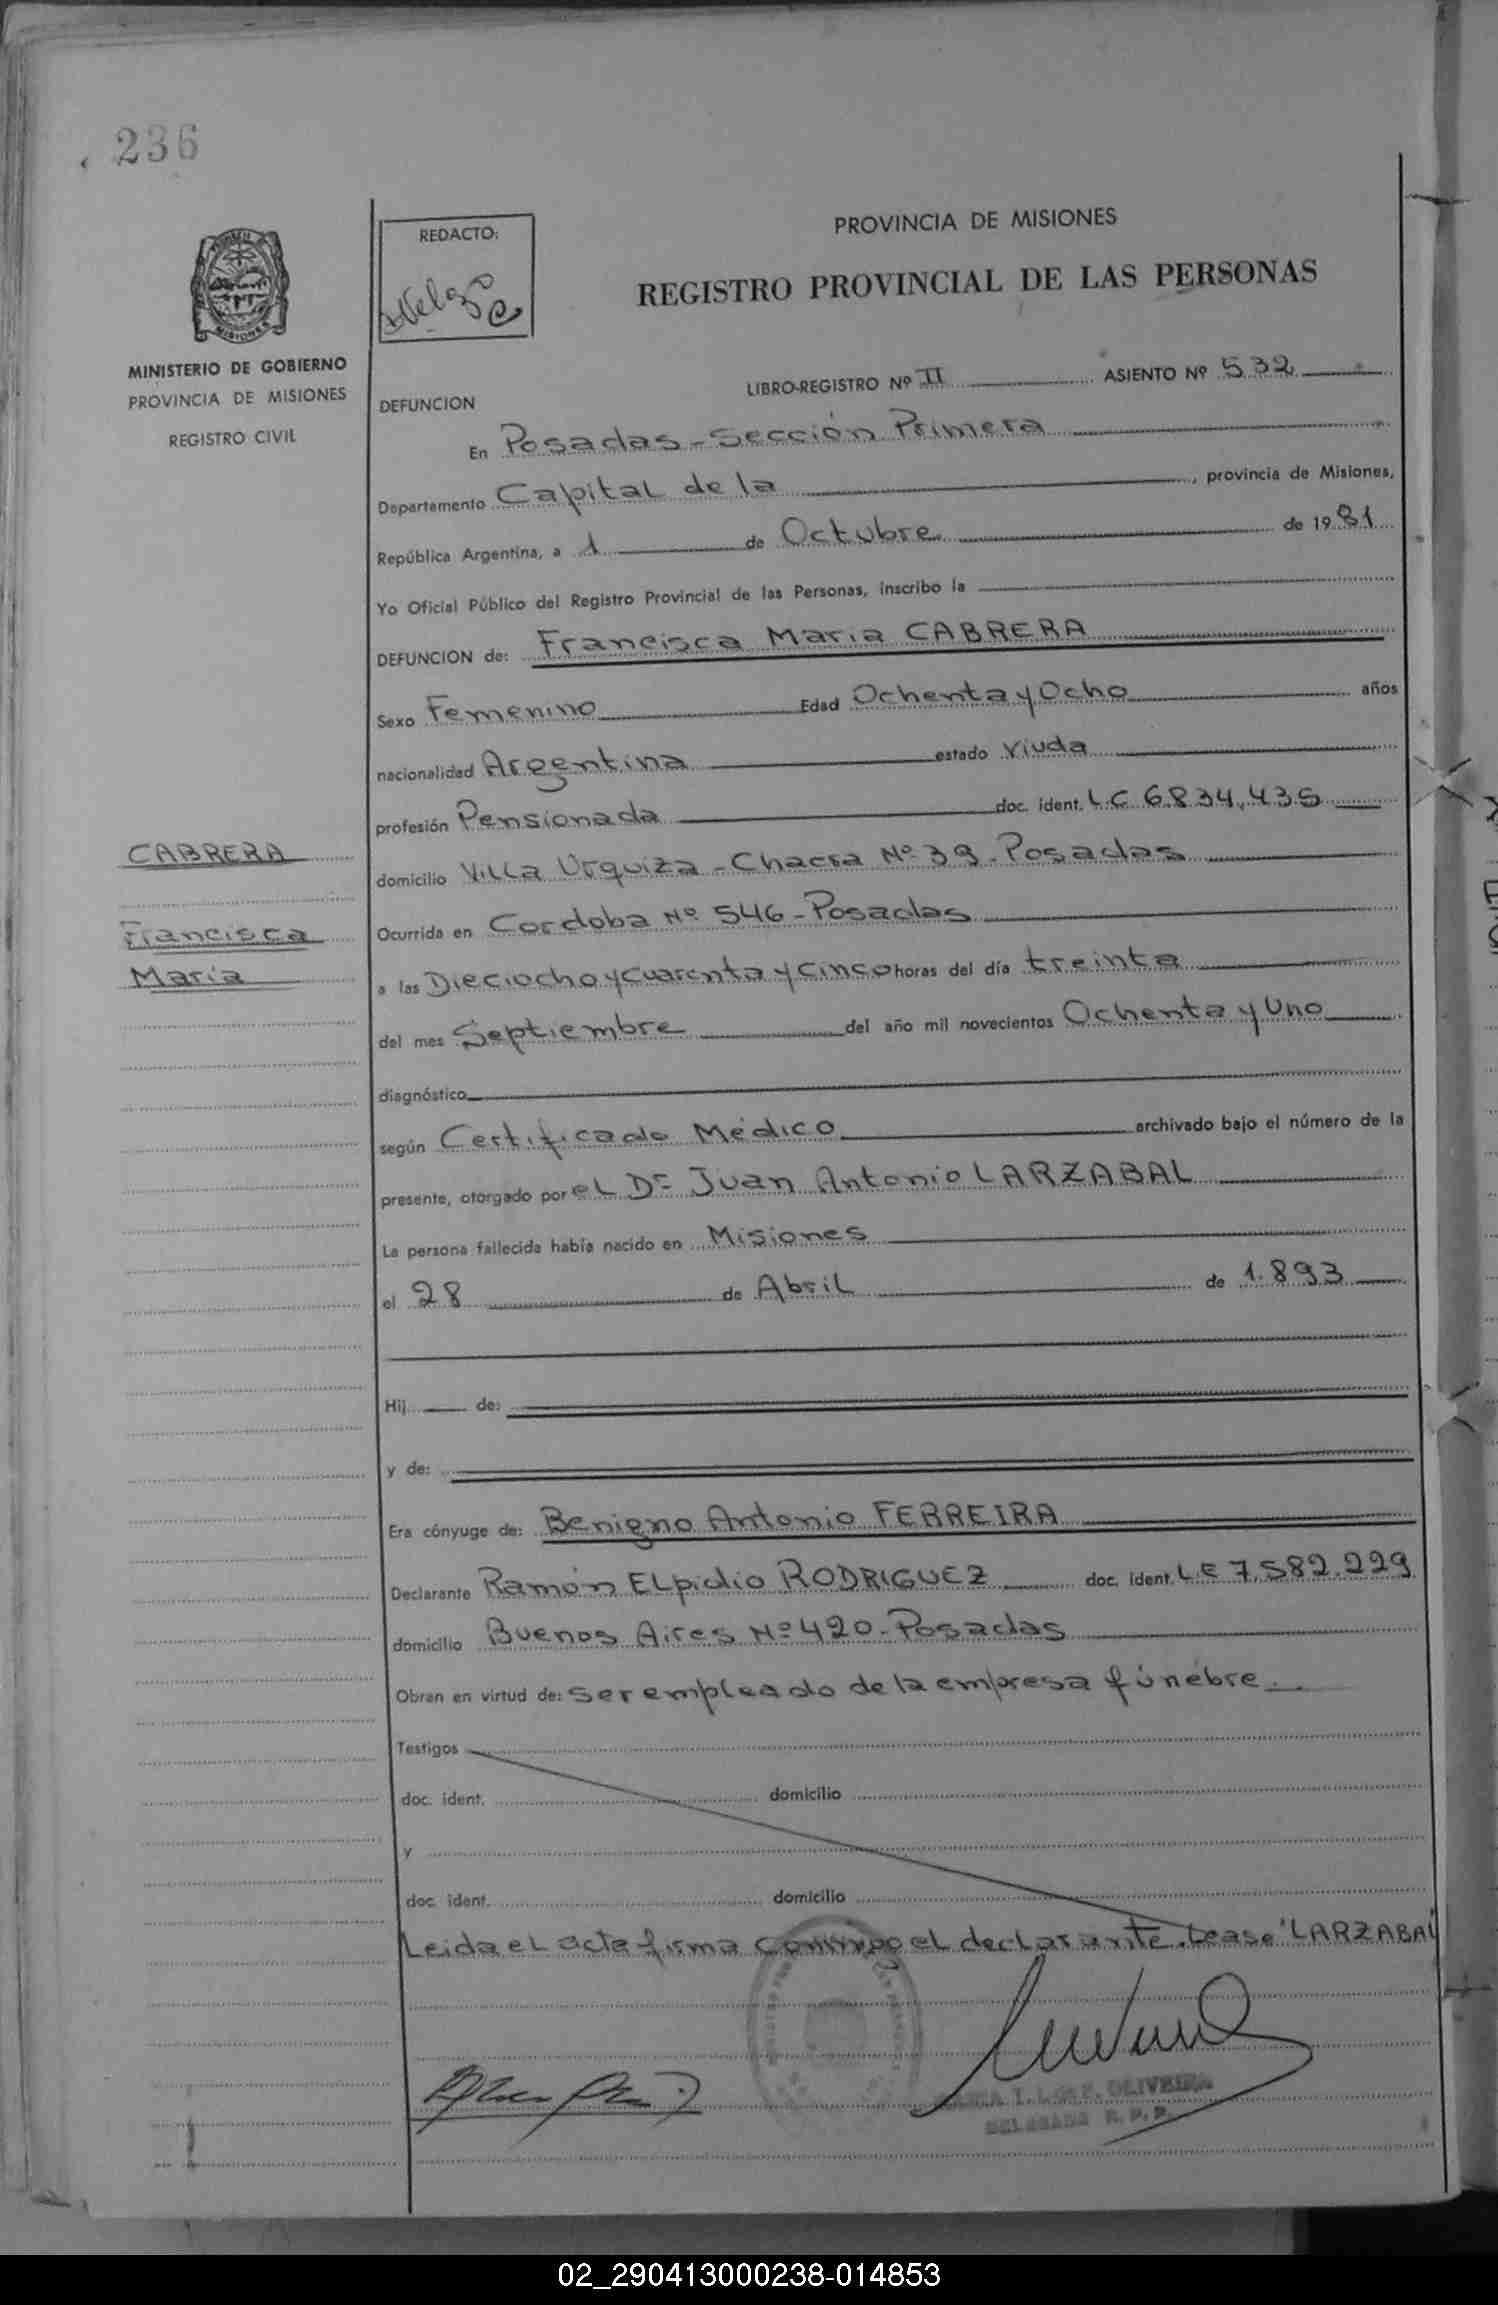 236
REDACTO:
PROVINCIA DE MISIONES
REGISTRO PROVINCIAL DE LAS PERSONAS
MINISTERIO DE GOBIERNO
PROVINCIA DE MISIONES
REGISTRO CIVIL
LIBRO-REGISTRO Nº II ASIENTO Nº 532
DEFUNCION
En Posadas - Sección Primera
Departamento Capital de la, provincia de Misiones,
República Argentina, a 1 de Octubre de 1981
Yo Oficial Público del Registro Provincial de las Personas, inscribo la
DEFUNCION de: Francisca Maria CABRERA
Sexo Femenino Edad Ochenta y Ocho años
nacionalidad Argentina estado Viuda
profesión Pensionada doc. ident. LC 6834.435
CABRERA
Francisca
María
domicilio Villa Urquiza - Chacra Nº 39 - Posadas
Ocurrida en Cordoba Nº 546 - Posadas
a las Dieciocho y Cuarenta y Cinco horas del día treinta
del mes Septiembre del año mil novecientos Ochenta y Uno
diagnóstico
según Certificado Médico archivado bajo el número de la
presente, otorgado por el Dr Juan Antonio LARZABAL
La persona fallecida había nacido en Misiones
el 28 de Abril de 1.893
Hij de:
y de:
Era cónyuge de: Benigno Antonio FERREIRA
Declarante Ramón Elpidio RODRIGUEZ doc. ident. LE 7.582.229
domicilio Buenos Aires Nº 420 - Posadas
Obran en virtud de: ser empleado de la empresa fúnebre.
Testigos
doc. ident. domicilio
y
doc. ident. domicilio
Leida el acta firma conmigo el declarante. Lease "LARZABAL"
OLIVEIRA
02_290413000238-014853